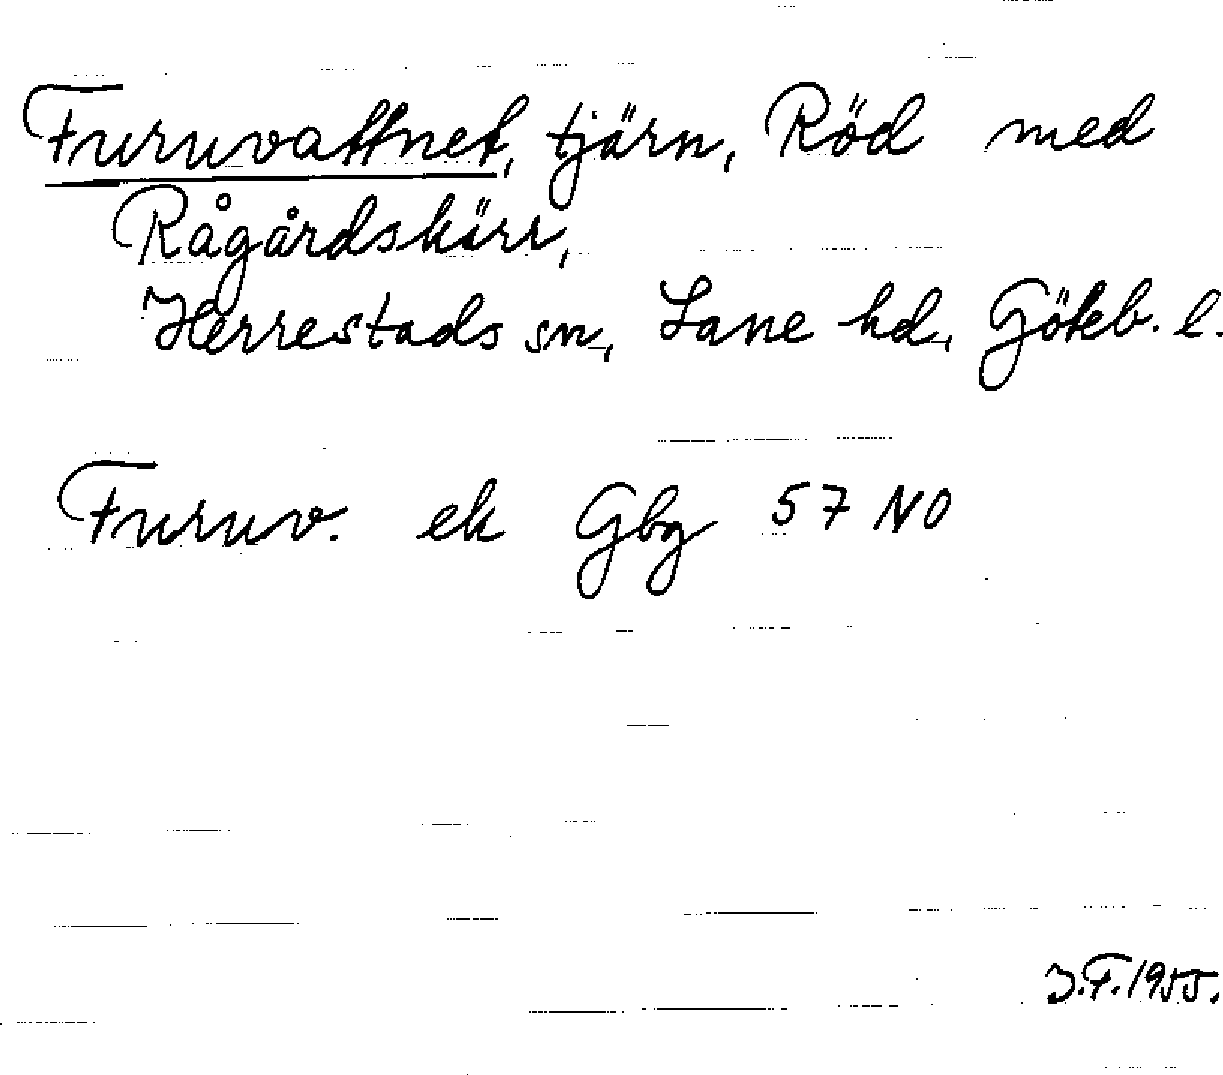 Furuvattnet, tjärn, Röd med
Rågårdskärr,
Herrestads sn, Lane hd, Göteb. l.
Furuv. ek Gbg 57 NO
J.F. 1955.